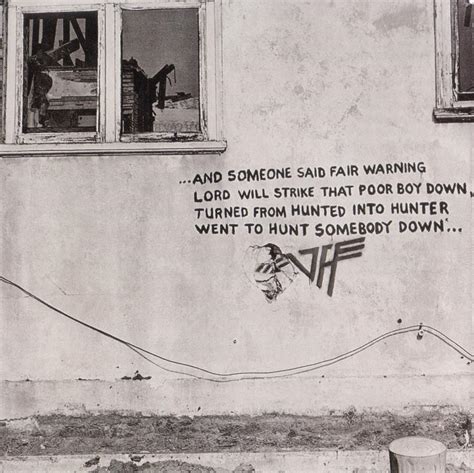 ...AND SOMEONE SAID FAIR WARNING
LORD WILL STRIKE THAT POOR BOY DOWN...
TURNED FROM HUNTED INTO HUNTER
WENT TO HUNT SOMEBODY DOWN...
VH